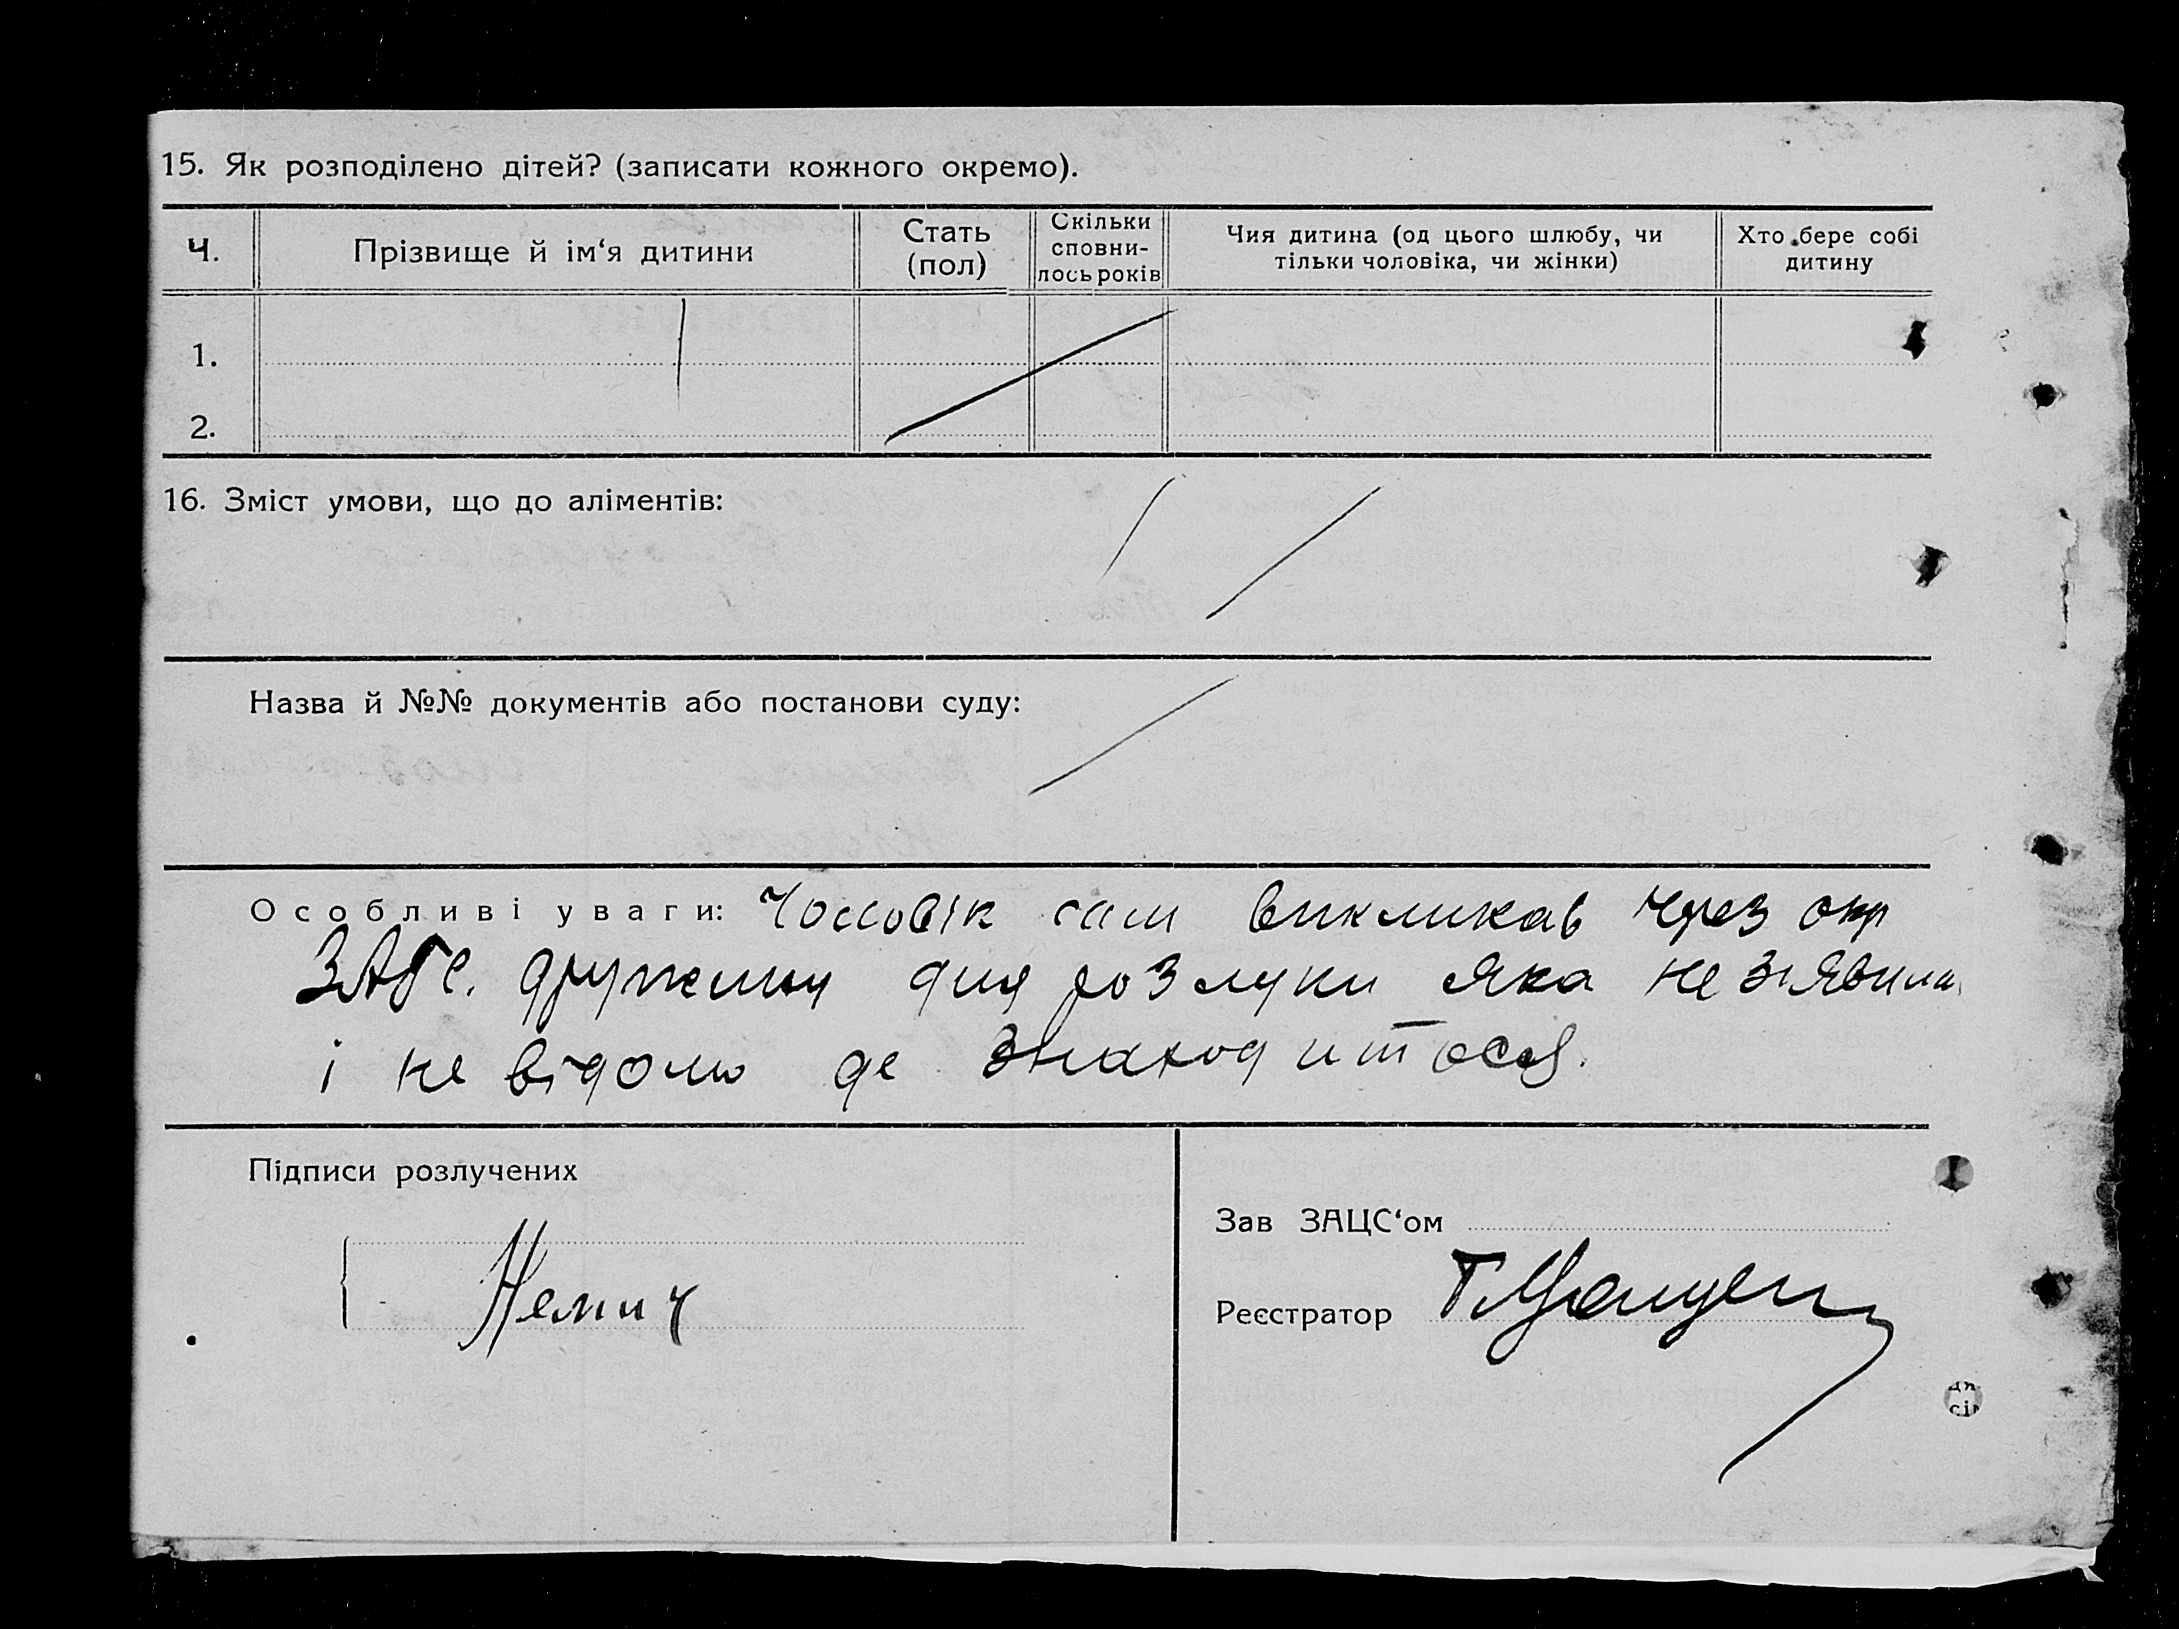 15. Як розподілено дітей? (записати кожного окремо).
Ч. Прізвище й ім‘я дитини Стать (пол) Скільки сповни-лось років Чия дитина (од цього шлюбу, чи тільки чоловіка, чи жінки) Хто бере собі дитину
1.
2.
16. Зміст умови, що до аліментів:
Назва й №№ документів або постанови суду:
Особливі уваги: Чоловік сам викликав через окр
ЗАГС. дружину для розлуки яка не зъявила
і не відомо де знаходитьсся.
Підписи розлучених
Зав ЗАЦС‘ом
Немич
Реєстратор